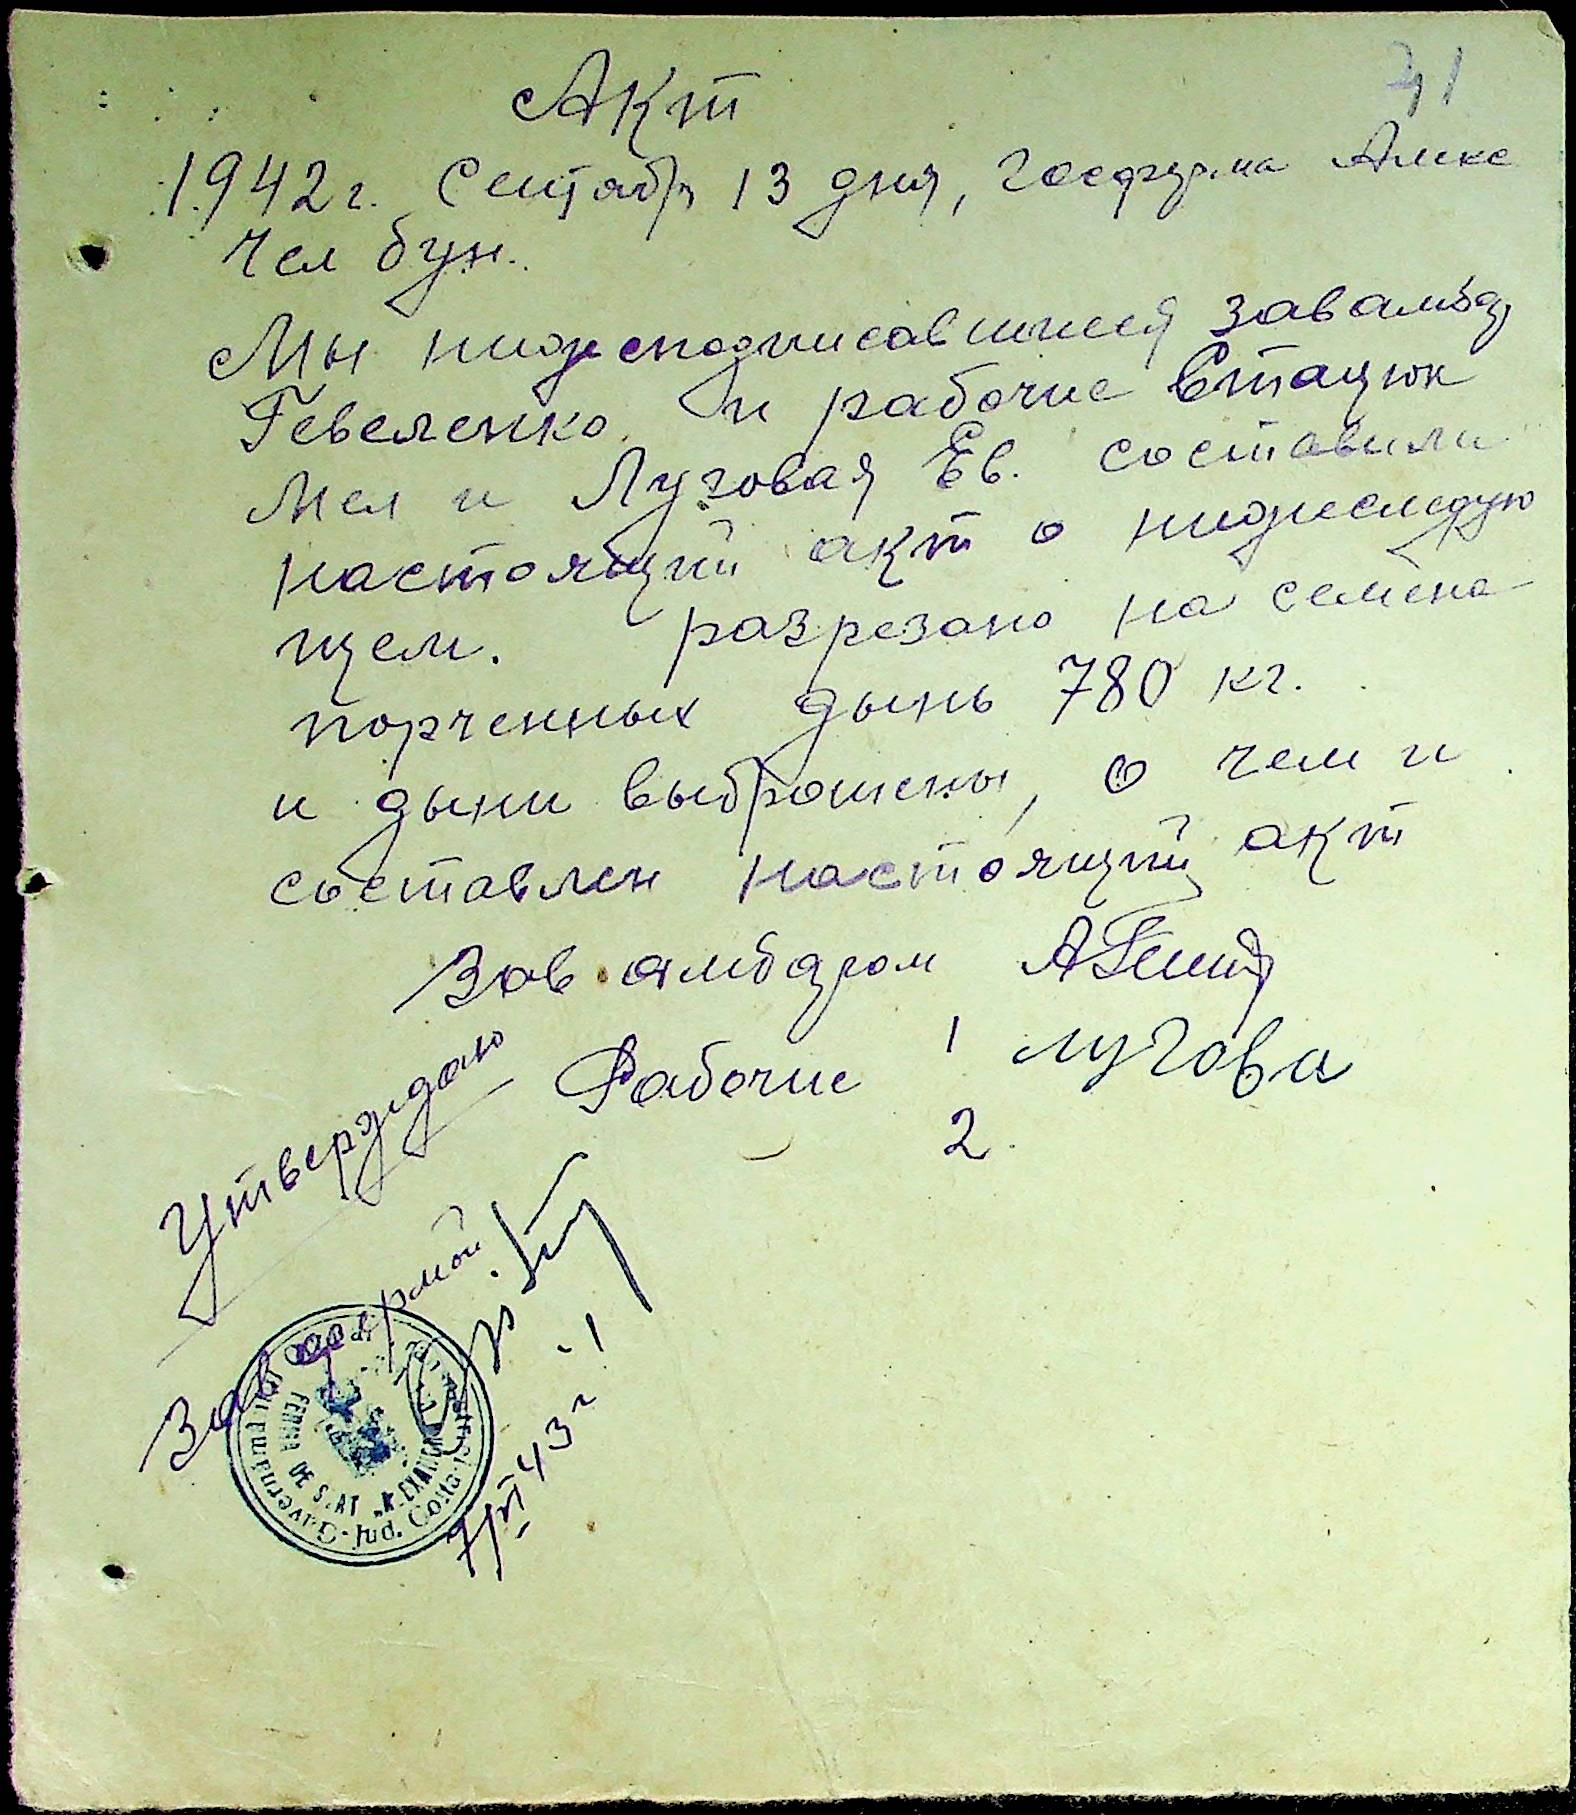 71
Акт
1942 г. Сентября 13 дня, Госферма Алекс
чел бун.
Мы нижеподписавшиеся завамб.
Гевеленко и рабочие Стацюк
Мел и Луговая Ев. составили
настоящий акт о нижеследую
щем. разрезано на семена
порченных дынь 780 кг.
и дыни выброшены, о чем и
составлен настоящий акт
Зав амбаром
Рабочие 1 лугова
2
Утверждаю
Зав фермой
7/VI 43 г
Guvernamântul
Jud. Golta
FERMA DE STAT